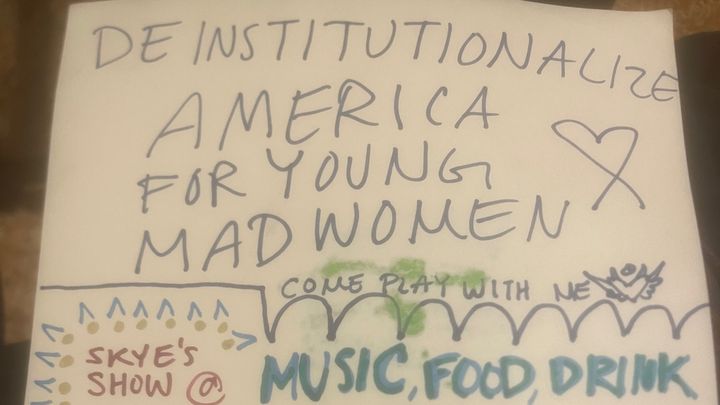 DEINSTITUTIONALIZE
AMERICA
FOR YOUNG
MAD WOMEN
COME PLAY WITH ME
SKYE'S
SHOW @
MUSIC, FOOD, DRINK